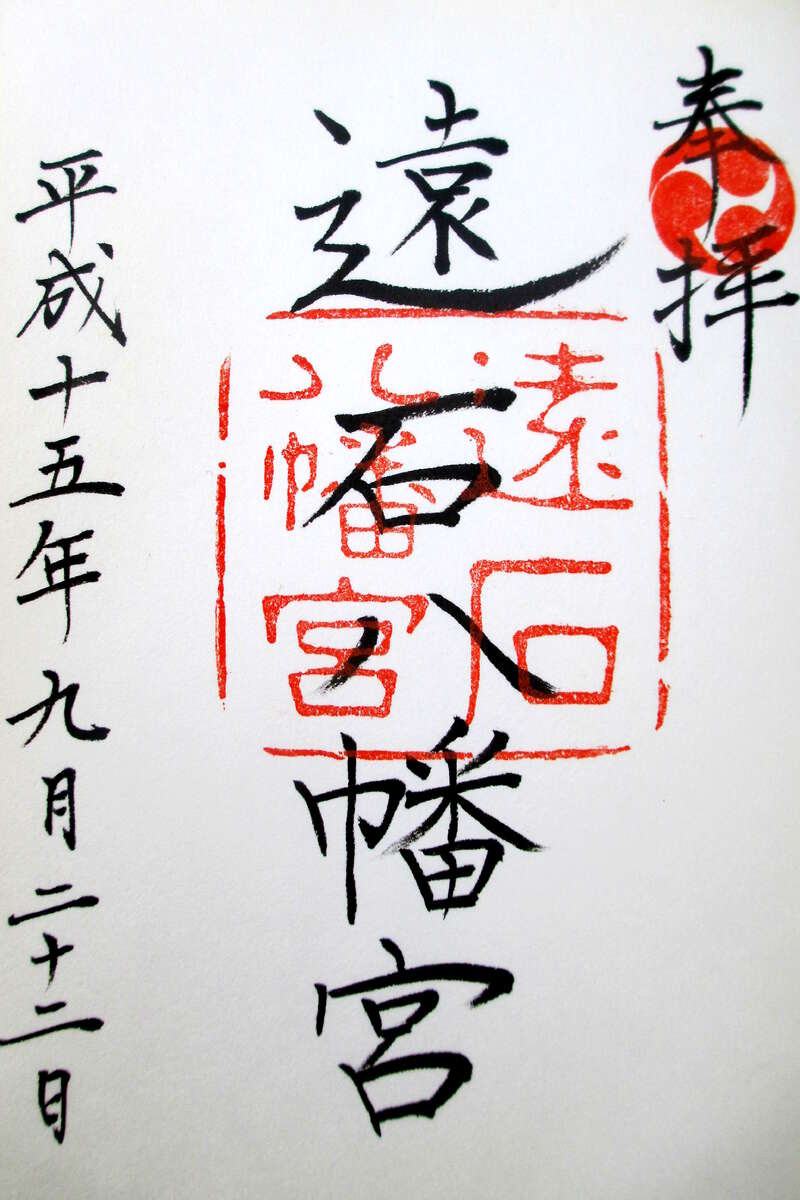 奉拝
遠石八幡宮
遠石
八幡宮
平成十五年九月二十二日